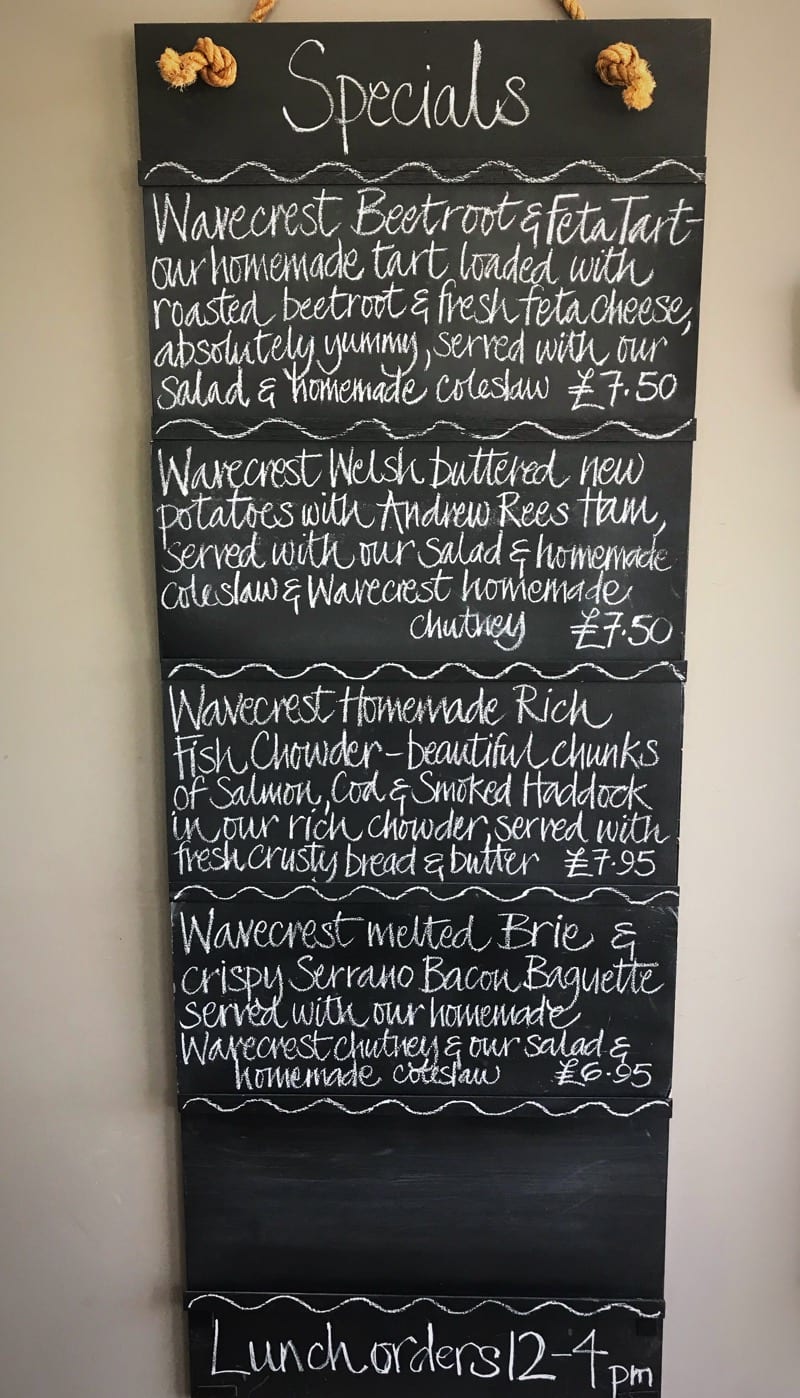 Specials
Wavecrest Beetroot & Feta Tart-
our homemade tart loaded with
roasted beetroot & fresh feta cheese,
absolutely yummy, served with our
salad & homemade coleslaw £7.50
Wavecrest Welsh buttered new
potatoes with Andrew Rees Ham,
served with our salad & homemade
coleslaw & Wavecrest homemade
chutney £7.50
Wavecrest Homemade Rich
Fish Chowder - beautiful chunks
of Salmon, Cod & Smoked Haddock
in our rich chowder, served with
fresh crusty bread & butter £7.95
Wavecrest melted Brie &
crispy Serrano Bacon Baguette
served with our homemade
Wavecrest chutney & our salad &
homemade coleslaw £6.95
Lunch orders 12-4pm